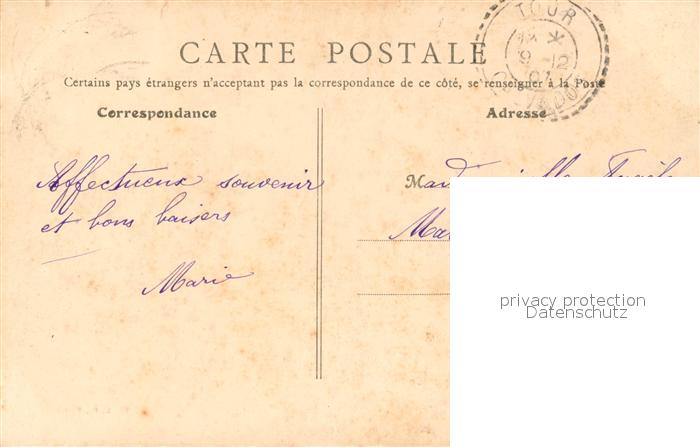 TOUR
9-12
CARTE POSTALE
Certains pays étrangers n'acceptant pas la correspondance de ce côté, se renseigner à la Poste
Correspondance
Adresse
Affectueux souvenir
et bons baisers
Marie
Mademoiselle
privacy protection
Datenschutz